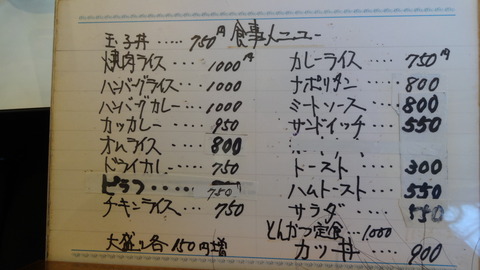 食事メニュー
玉子丼‥‥‥750円
焼肉ライス‥‥1000円
ハンバーグライス‥1000
ハンバーグカレー‥1000
カツカレー‥‥950
オムライス‥‥800
ドライカレー‥‥750
ピラフ‥‥‥750
チキンライス‥‥750
大盛り各150円増
カレーライス‥‥750円
ナポリタン‥‥800
ミートソース‥‥800
サンドイッチ‥‥550
トースト‥‥300
ハムトースト‥‥550
サラダ‥‥550
とんかつ定食‥‥1000
カツ丼‥‥900